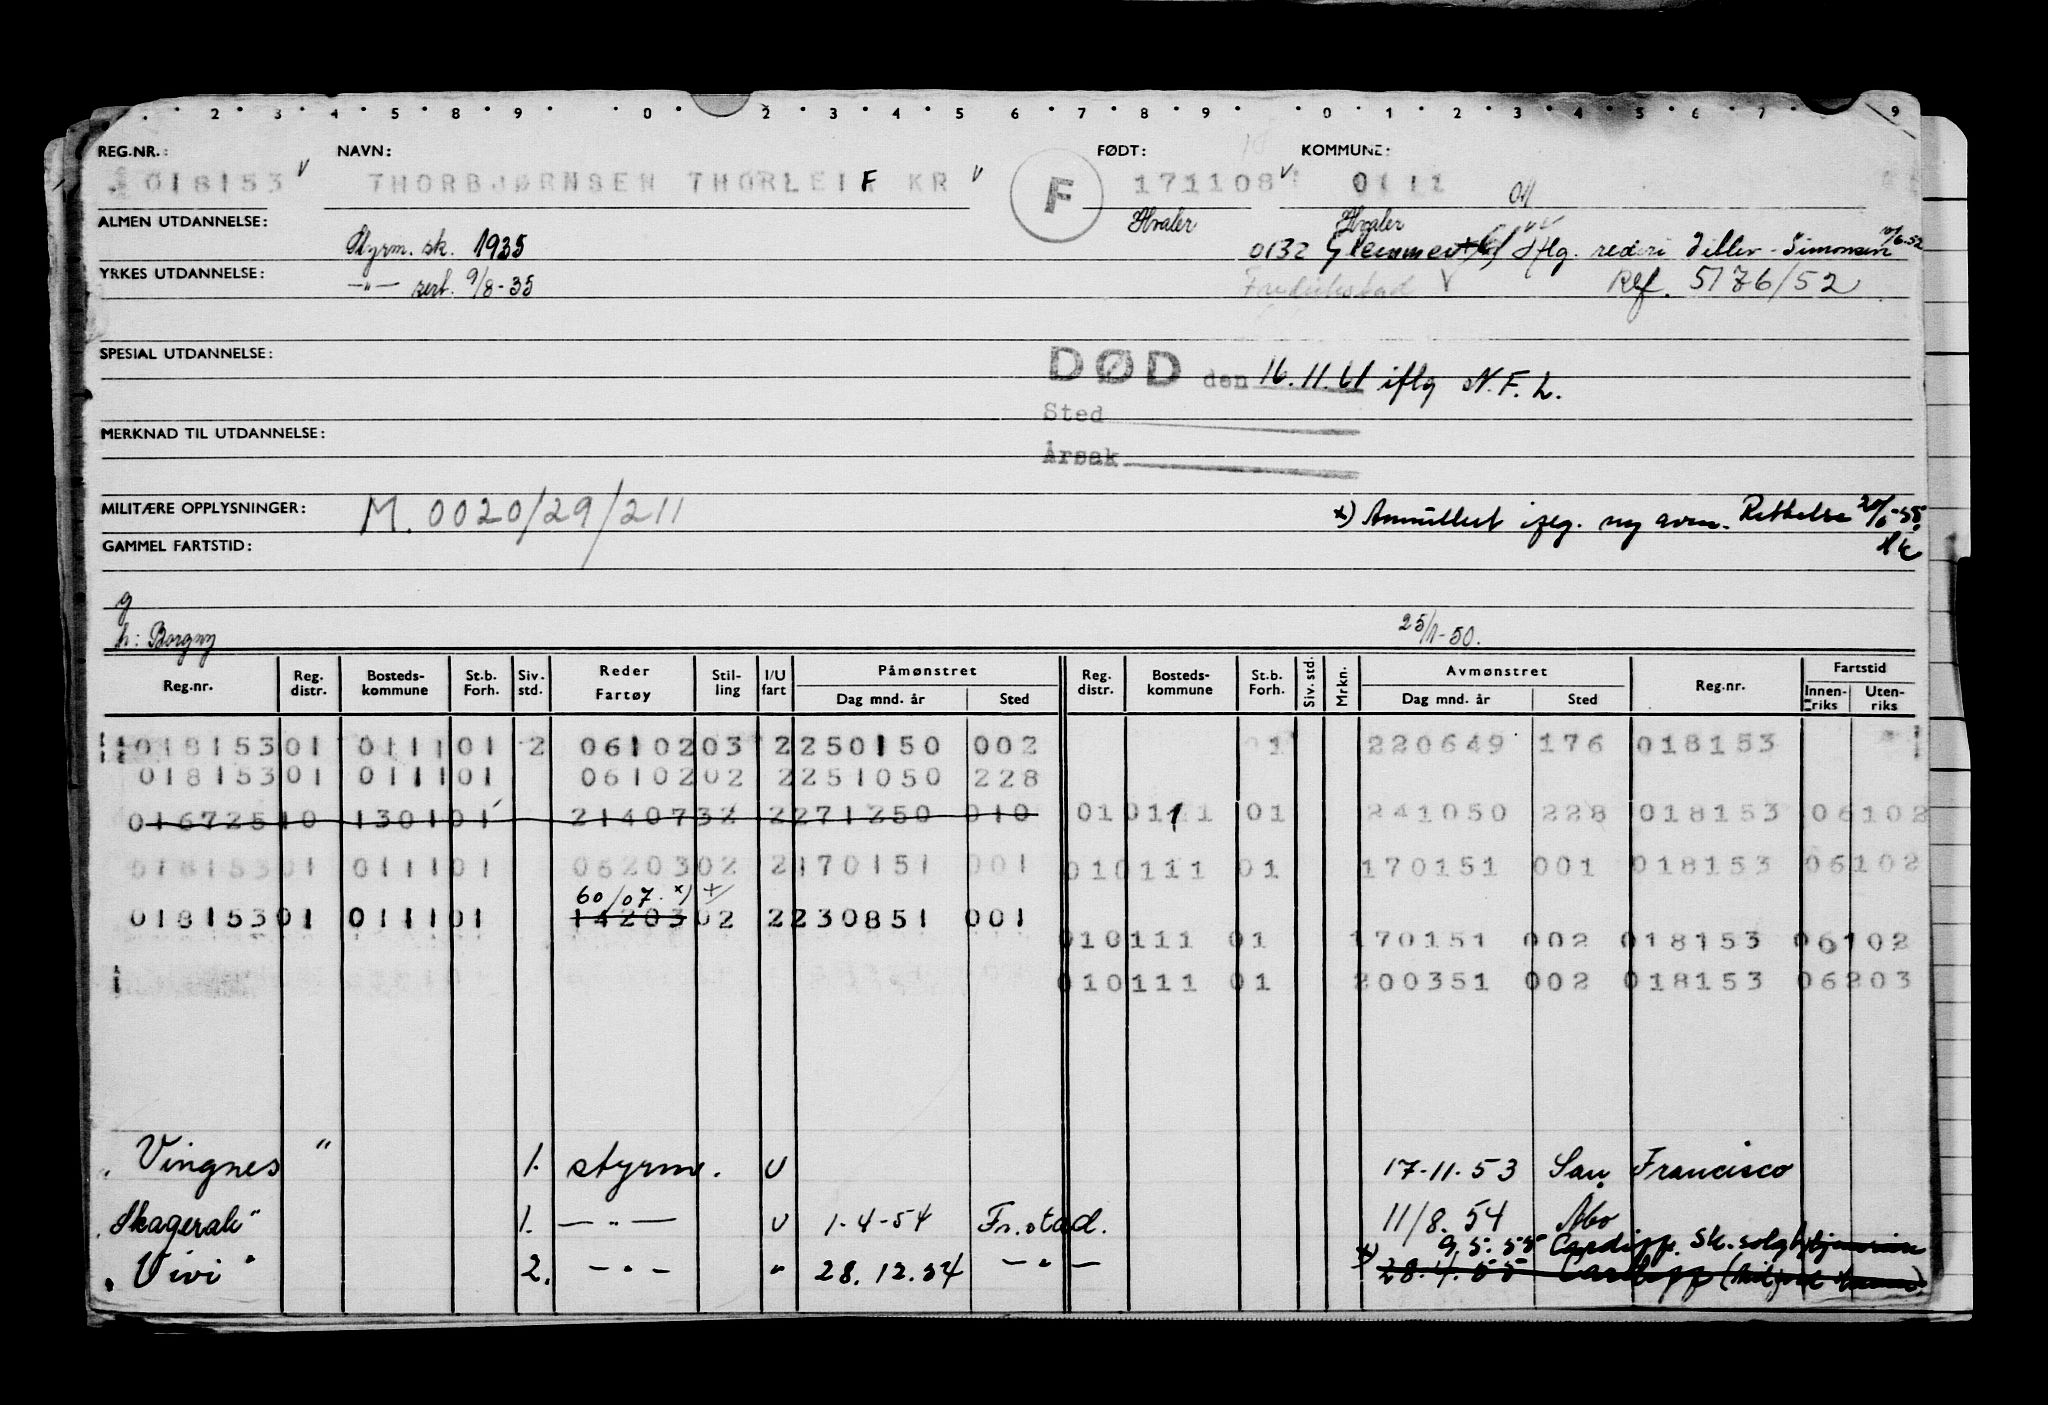 2 3 4 5 8 9 0 2 3 4 5 6 7 8 9 0 1 2 3 4 5 6 7 9
REG.NR.: NAVN: FØDT: KOMMUNE:
018153 V THORBJØRNSEN THORLEIF KR V F 171108 V 0111
ALMEN UTDANNELSE: Hvaler Hvaler
Styrm. sk. 1935 0132 iflg. rederi Ditlev-Simonsen 10/6.52
YRKES UTDANNELSE: —"— sert. 9/8-35 Fredrikstad V Ref. 5176/52
SPESIAL UTDANNELSE:
DØD den 16.11.61 iflg N.F.L.
Sted
MERKNAD TIL UTDANNELSE:
Årsak
MILITÆRE OPPLYSNINGER: M. 0020/29/211 x) Annullert iflg. ny avm. Rettelse
GAMMEL FARTSTID:
g
h: Borgny 25/1-50.
Reg.nr. Reg. distr. Bosteds-kommune St.b. Forh. Siv. std. Reder Fartøy Stil-ling I/U fart Påmønstret Dag mnd. år Sted Reg. distr. Bosteds-kommune St.b. Forh. Siv. std. Mrkn. Avmønstret Dag mnd. år Sted Reg.nr. Fartstid Innen-riks Uten-riks
018153 01 0111 01 2 06102 03 2 250150 002 01 220649 176 018153
018153 01 0111 01 06102 02 2 251050 228
016725 10 1301 01 21407 32 2 271250 010 01 0111 01 241050 228 018153 06102
018153 01 0111 01 06203 02 2 170151 001 01 0111 01 170151 001 018153 06102
60/07. x)
018153 01 0111 01 14203 02 2 230851 001
01 0111 01 170151 002 018153 06102
01 0111 01 200351 002 018153 06203
"Vingnes" 1. styrm. U 17-11-53 San Francisco
"Skagerak" 1. —"— U 1-4-54 Fr.stad. 11/8.54 Åbo
9.5.55 Cardiff. Sk. solgt
"Vivi" 2. —"— " 28.12.54 —"— x) 28.4.55 Cardiff